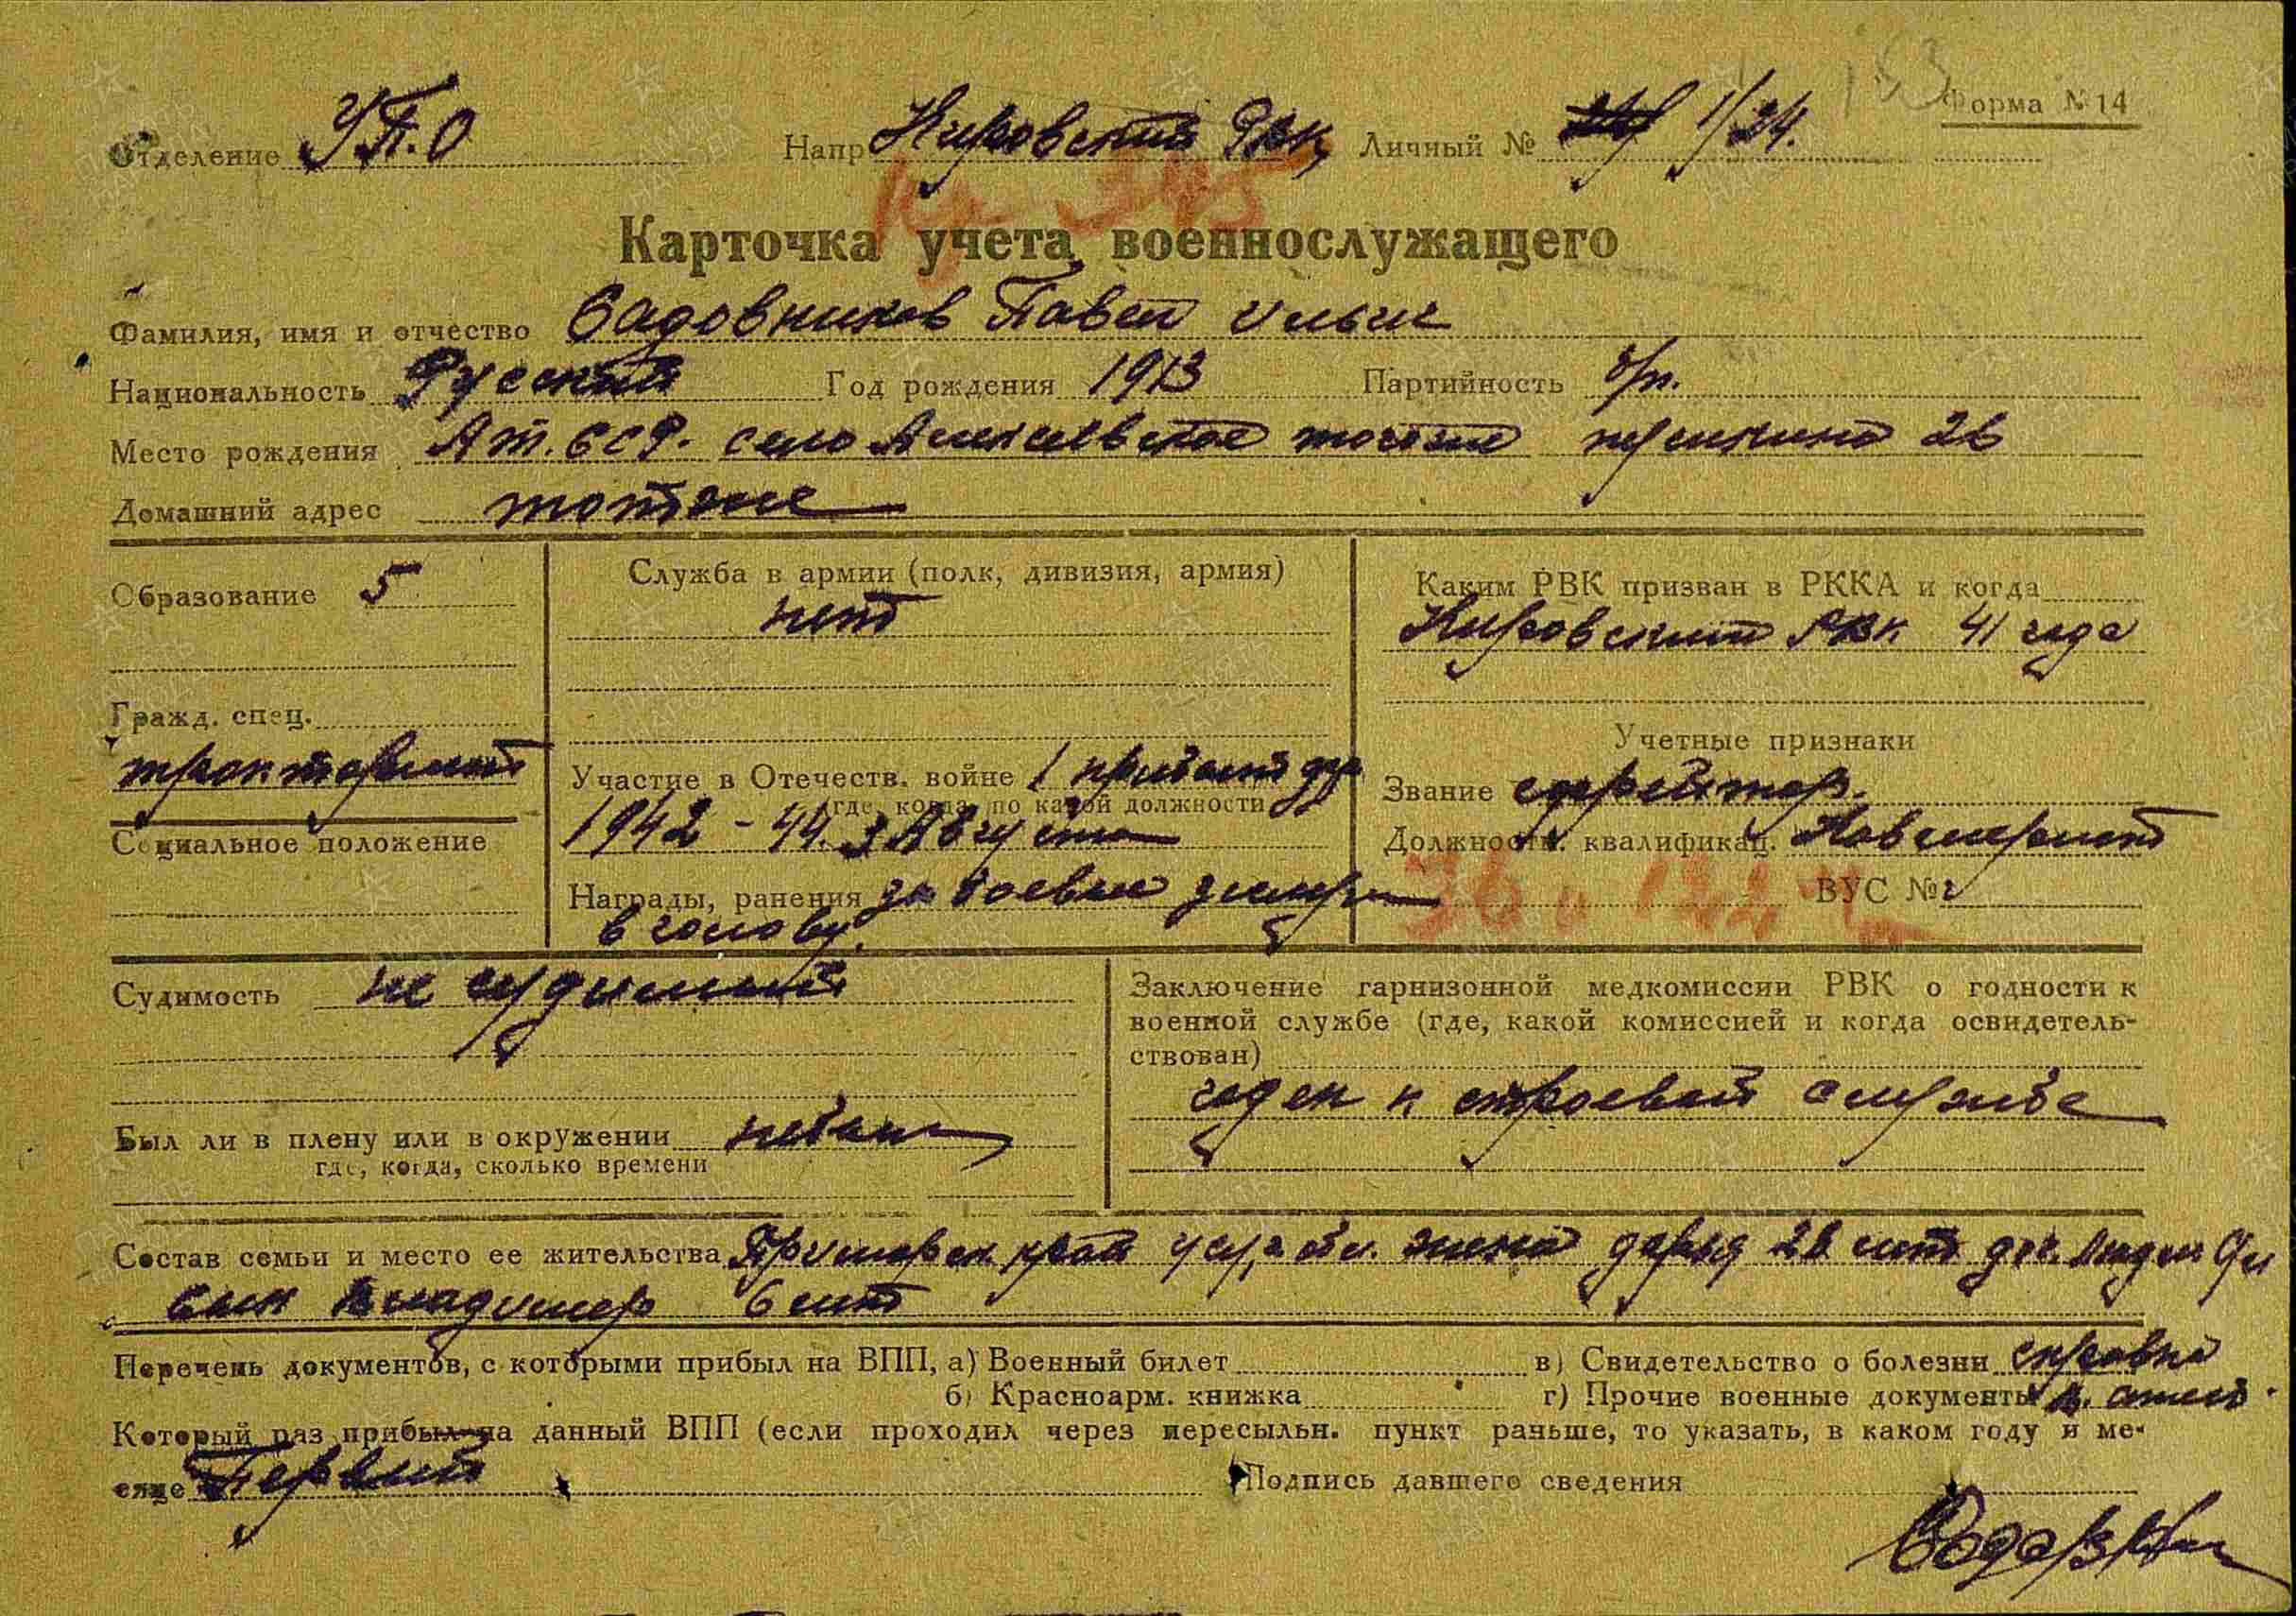 Форма №14
Отделение УП.О Напр Кировский РВК Личный № 1/24.
Карточка учета военнослужащего
Фамилия, имя и отчество Садовников Павел Ильич
Национальность Русский Год рождения 1913 Партийность б/п.
Место рождения село Алексеевское 26
Домашний адрес
Образование 5
Гражд. спец.
тракторист
Социальное положение
Служба в армии (полк, дивизия, армия)
нет
Участие в Отечеств. войне 1
где, когда, по какой должности
1942 - 44. 3 Августа
Награды, ранения за боевые
в голову.
Каким РВК призван в РККА и когда
Кировский РВК 41 года
Учетные признаки
Звание ефрейтор.
Должностн. квалификац.
ВУС №
Судимость не судимый
Был ли в плену или в окружении небыл
где, когда, сколько времени
Заключение гарнизонной медкомиссии РВК о годности к
военной службе (где, какой комиссией и когда освидетель-
ствован)
годен к строевой службе
Состав семьи и место ее жительства Приморск. край жена Дарья 28 лет
сын Владимер 6 лет
Перечень документов, с которыми прибыл на ВПП, а) Военный билет в) Свидетельство о болезни справка
б) Красноарм. книжка г) Прочие военные документы
Который раз прибыл на данный ВПП (если проходил через пересыльн. пункт раньше, то указать, в каком году и ме-
сяце Первый Подпись давшего сведения